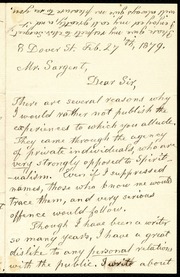 8 Dover St. Feb. 27th, 1879.
Mr. Sargent,
Dear Sir,
There are several reasons why
I would rather not publish the
experiences to which you allude.
They came through the agency
of private individuals, who are
very strongly opposed to Spirit-
ualism. Even if I suppressed
names, those who know me would
trace them, and very serious
offence would follow.
Though I have been a writer
so many years, I have a great
dislike to any personal relations
with the public. I write about